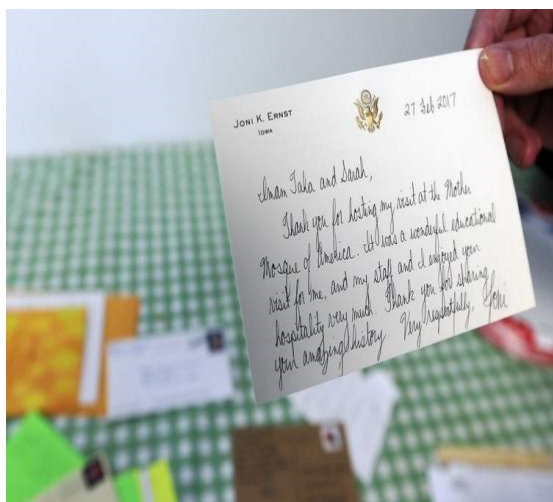 JONI K. ERNST
IOWA
27 Feb 2017
Imam Taha and Sarah,
Thank you for hosting my visit at the Mother
Mosque of America. It was a wonderful educational
visit for me, and my staff and I enjoyed your
hospitality very much. Thank you for sharing
your amazing history. Very respectfully, Joni